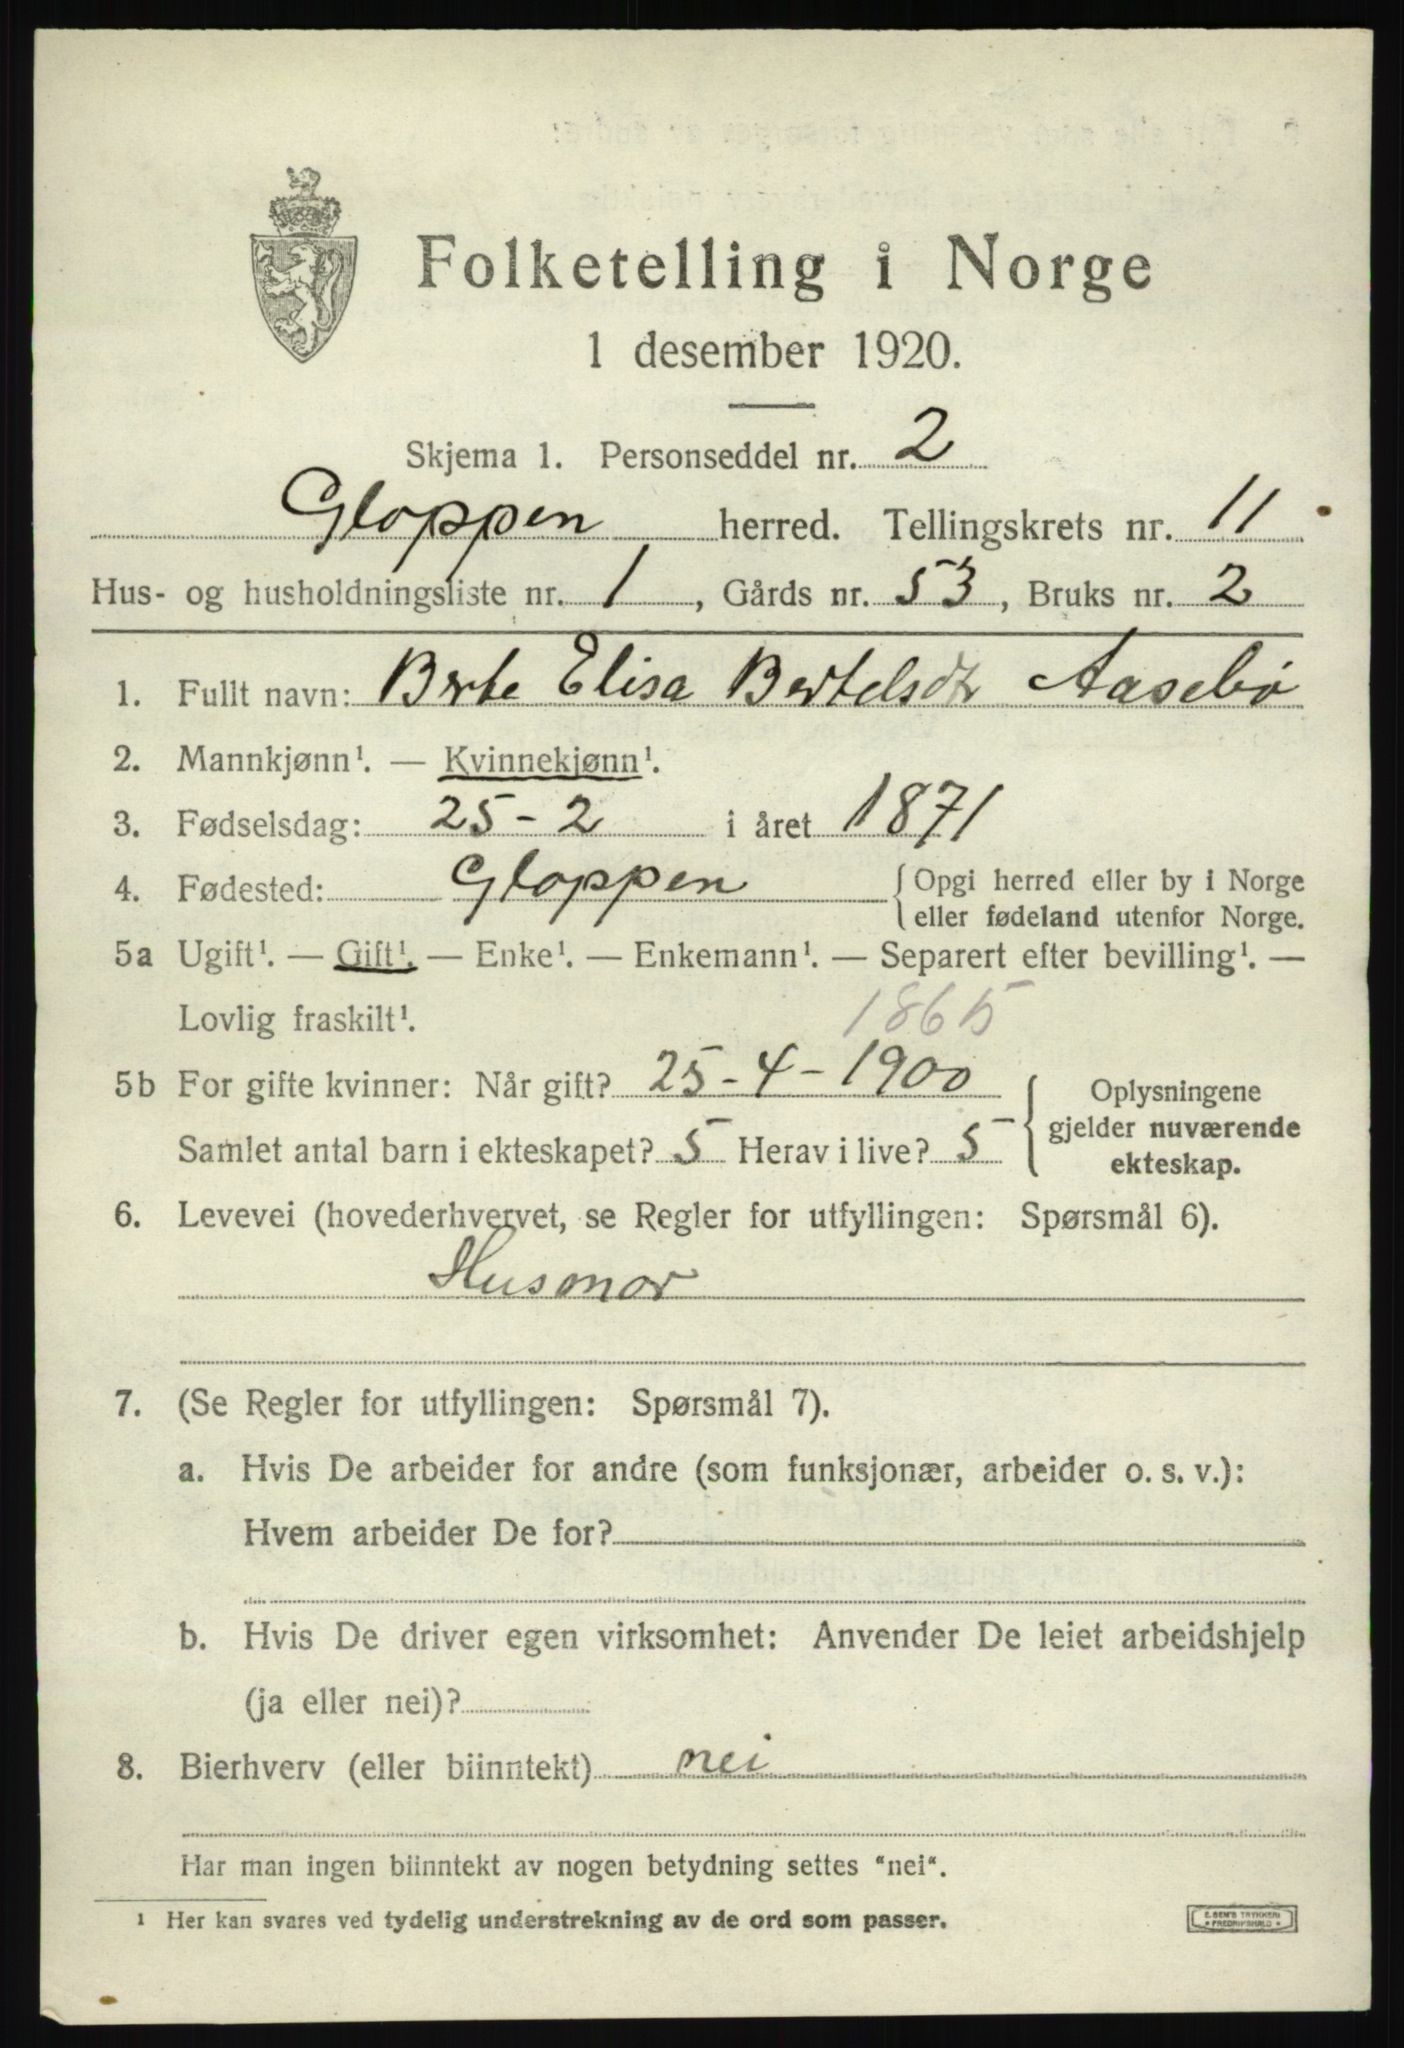 Folketelling i Norge
1 desember 1920.
Skjema 1. Personseddel nr. 2
Gloppen herred. Tellingskrets nr. 11
Hus- og husholdningsliste nr. 1, Gårds nr. 53, Bruks nr. 2
1. Fullt navn: Berte Elisa Bertelsdtr Aasebø
2. Mannkjønn¹. — Kvinnekjønn¹.
3. Fødselsdag: 25-2 i året 1871
4. Fødested: Gloppen { Opgi herred eller by i Norge
eller fødeland utenfor Norge.
5a Ugift¹. — Gift¹. — Enke¹. — Enkemann¹. — Separert efter bevilling¹. —
Lovlig fraskilt¹. 1865
5b For gifte kvinner: Når gift? 25-4-1900 { Oplysningene
Samlet antal barn i ekteskapet? 5 Herav i live? 5 gjelder nuværende
ekteskap.
6. Levevei (hovederhvervet, se Regler for utfyllingen: Spørsmål 6).
Husmor
7. (Se Regler for utfyllingen: Spørsmål 7).
a. Hvis De arbeider for andre (som funksjonær, arbeider o. s. v.):
Hvem arbeider De for?
b. Hvis De driver egen virksomhet: Anvender De leiet arbeidshjelp
(ja eller nei)?
8. Bierhverv (eller biinntekt) nei
Har man ingen biinntekt av nogen betydning settes "nei".
¹ Her kan svares ved tydelig understrekning av de ord som passer.
E. SEM'S TRYKKERI
FREDRIKSHALD